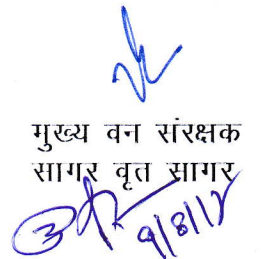 मुख्य वन संरक्षक
सागर वृत सागर
9/8/12